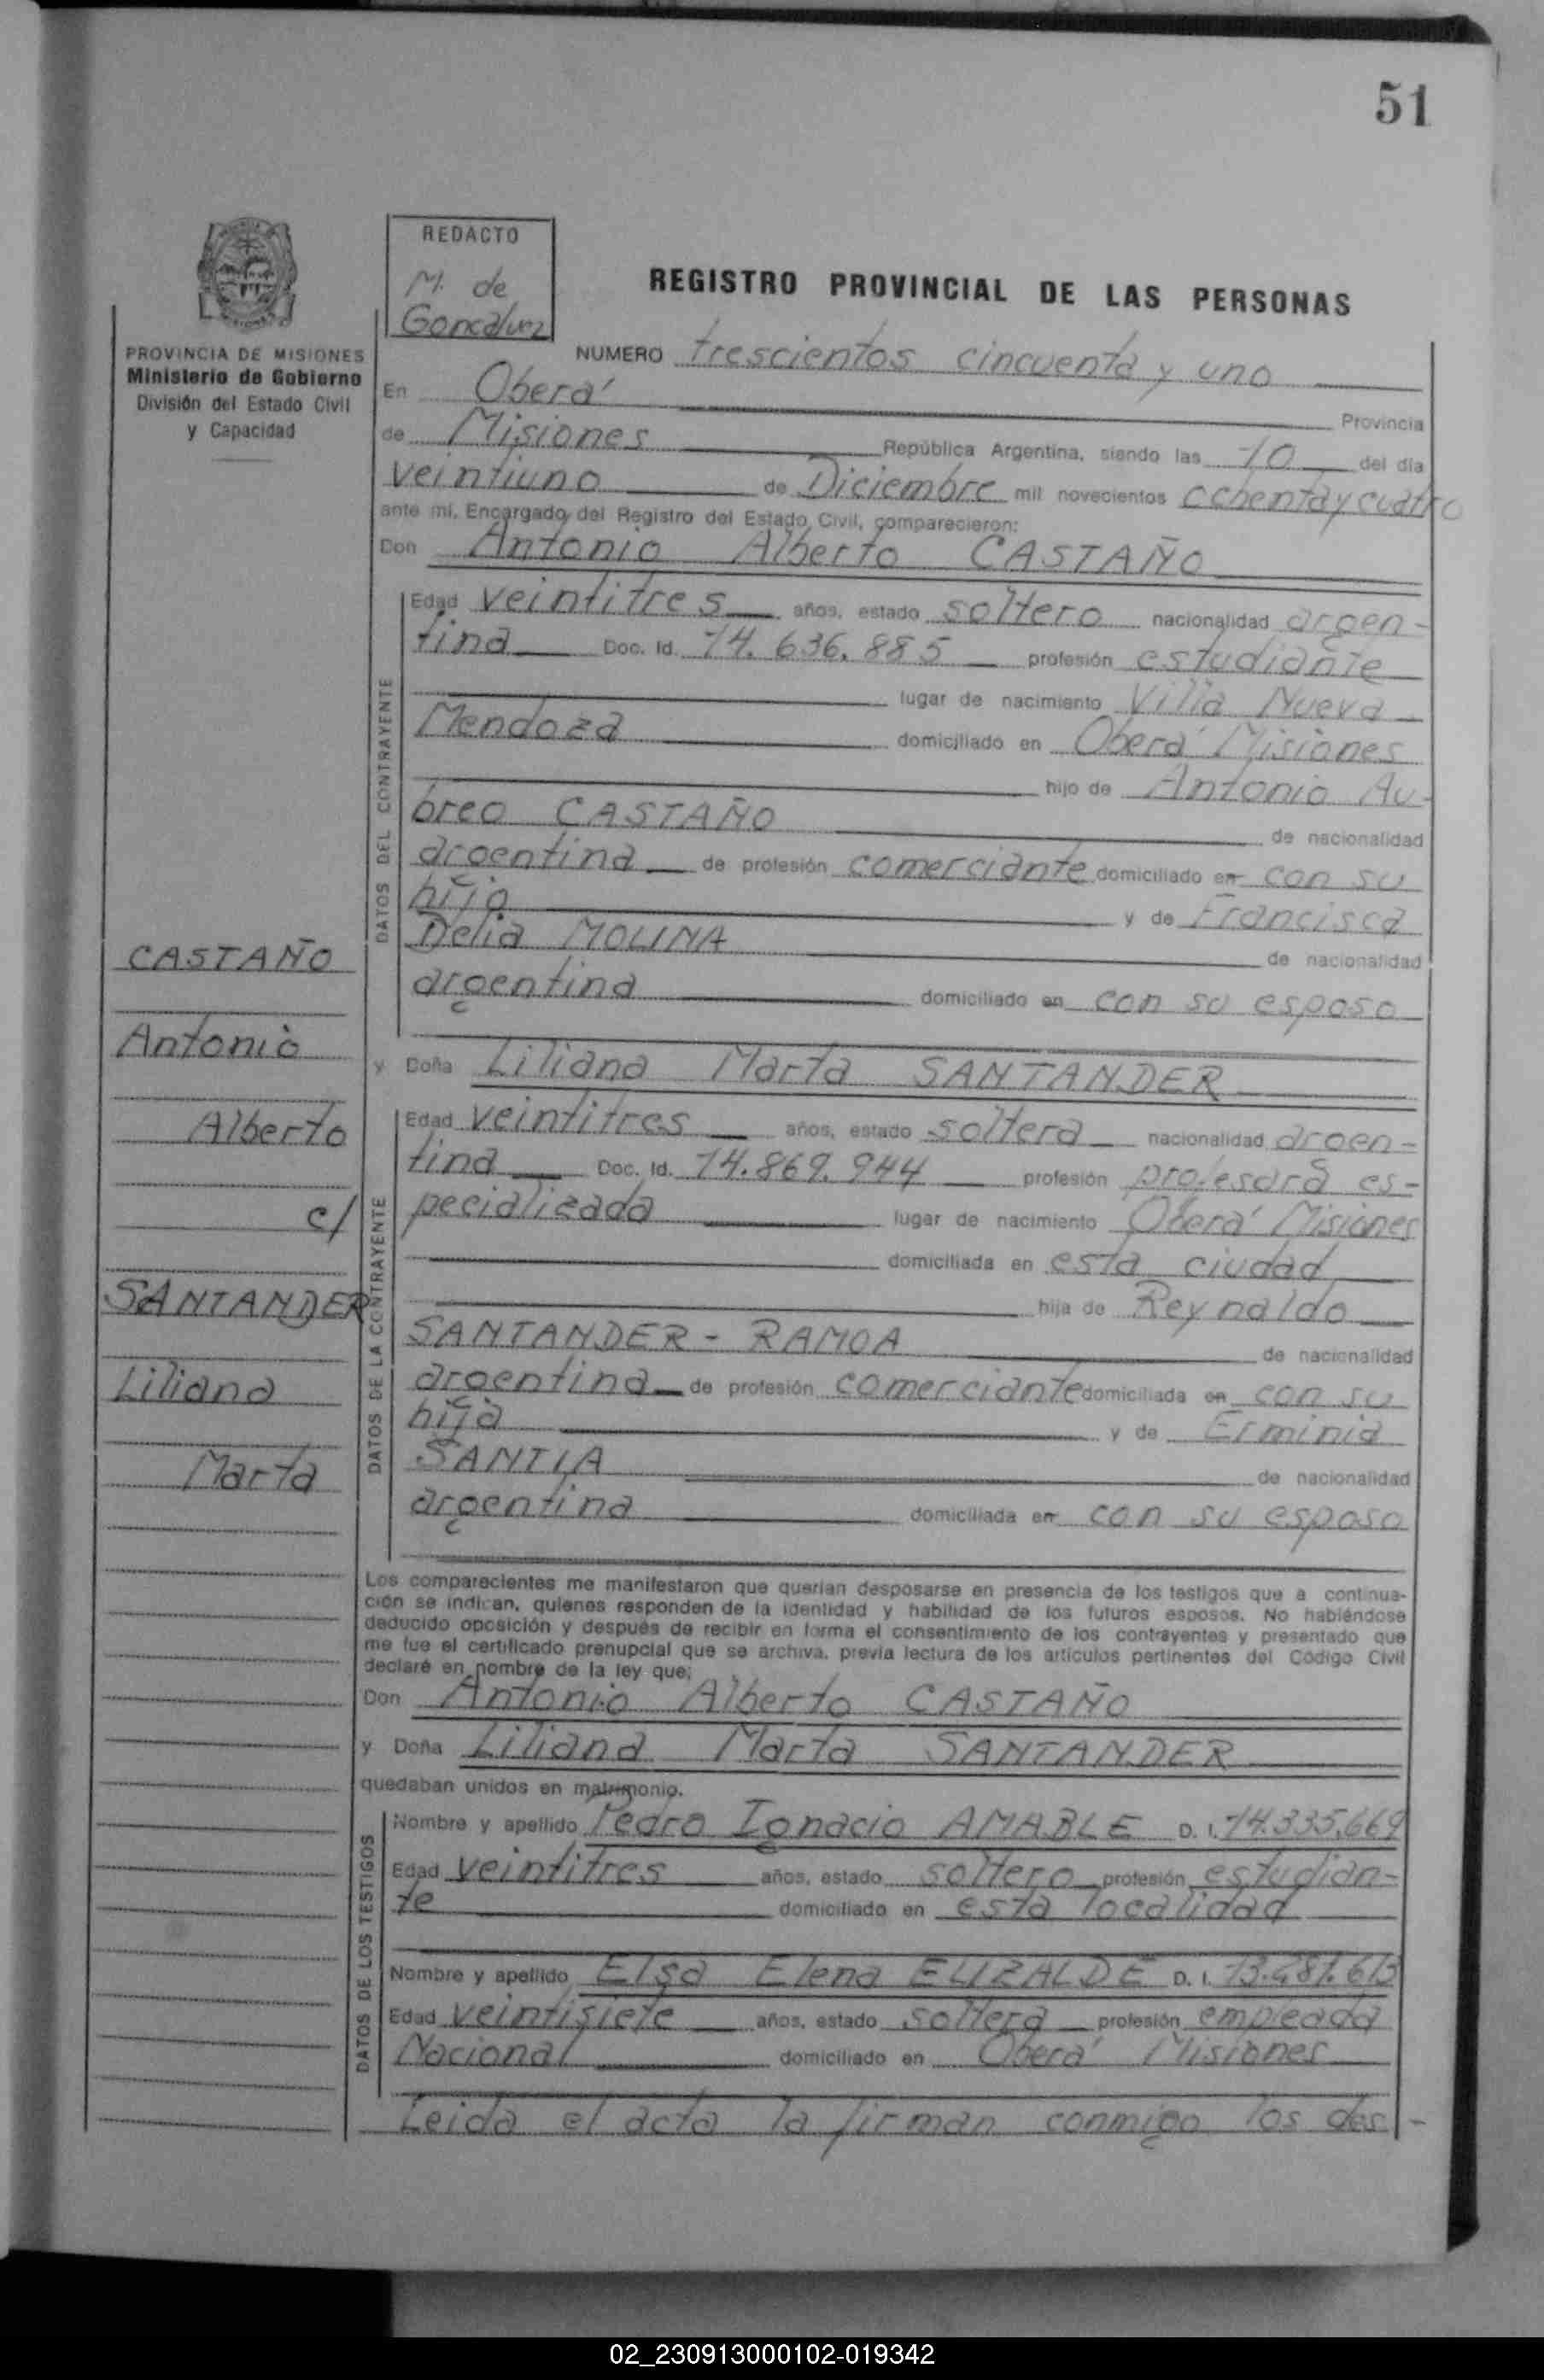 51
REDACTO
M. de
Goncálvez
REGISTRO PROVINCIAL DE LAS PERSONAS
PROVINCIA DE MISIONES
Ministerio de Gobierno
División del Estado Civil
y Capacidad
NUMERO trescientos cincuenta y uno
En Oberá Provincia
de Misiones República Argentina, siendo las 10 del día
veintiuno de Diciembre mil novecientos ochenta y cuatro
ante mí, Encargado del Registro del Estado Civil, comparecieron:
Don Antonio Alberto CASTAÑO
DATOS DEL CONTRAYENTE
Edad veintitres años, estado soltero nacionalidad argen-
tina Doc. Id. 14.636.885 profesión estudiante
lugar de nacimiento Villa Nueva
Mendoza domiciliado en Oberá Misiones
hijo de Antonio Au-
breo CASTAÑO de nacionalidad
argentina de profesión comerciante domiciliado en con su
hijo y de Francisca
Delia MOLINA de nacionalidad
argentina domiciliado en con su esposo
y Doña Liliana Marta SANTANDER
DATOS DE LA CONTRAYENTE
Edad veintitres años, estado soltera nacionalidad argen-
tina Doc. Id. 14.869.944 profesión profesora es-
pecializada lugar de nacimiento Oberá Misiones
domiciliada en esta ciudad
hija de Reynaldo
SANTANDER - RAMOA de nacionalidad
argentina de profesión comerciante domiciliada en con su
hija y de Erminia
SANTLA de nacionalidad
argentina domiciliada en con su esposo
CASTAÑO
Antonio
Alberto
c/
SANTANDER
Liliana
Marta
Los comparecientes me manifestaron que querían desposarse en presencia de los testigos que a continua-
ción se indican, quienes responden de la identidad y habilidad de los futuros esposos. No habiéndose
deducido oposición y después de recibir en forma el consentimiento de los contrayentes y presentado que
me fue el certificado prenupcial que se archiva, previa lectura de los artículos pertinentes del Código Civil
declaré en nombre de la ley que;
Don Antonio Alberto CASTAÑO
y Doña Liliana Marta SANTANDER
quedaban unidos en matrimonio.
DATOS DE LOS TESTIGOS
Nombre y apellido Pedro Ignacio AMABLE D. I. 14.335.669
Edad veintitres años, estado soltero profesión estudian-
te domiciliado en esta localidad
Nombre y apellido Elsa Elena ELIZALDE D. I.
Edad veintisiete años, estado soltera profesión empleada
Nacional domiciliado en Oberá Misiones
Leida el acta la firman conmigo los des-
02_230913000102-019342